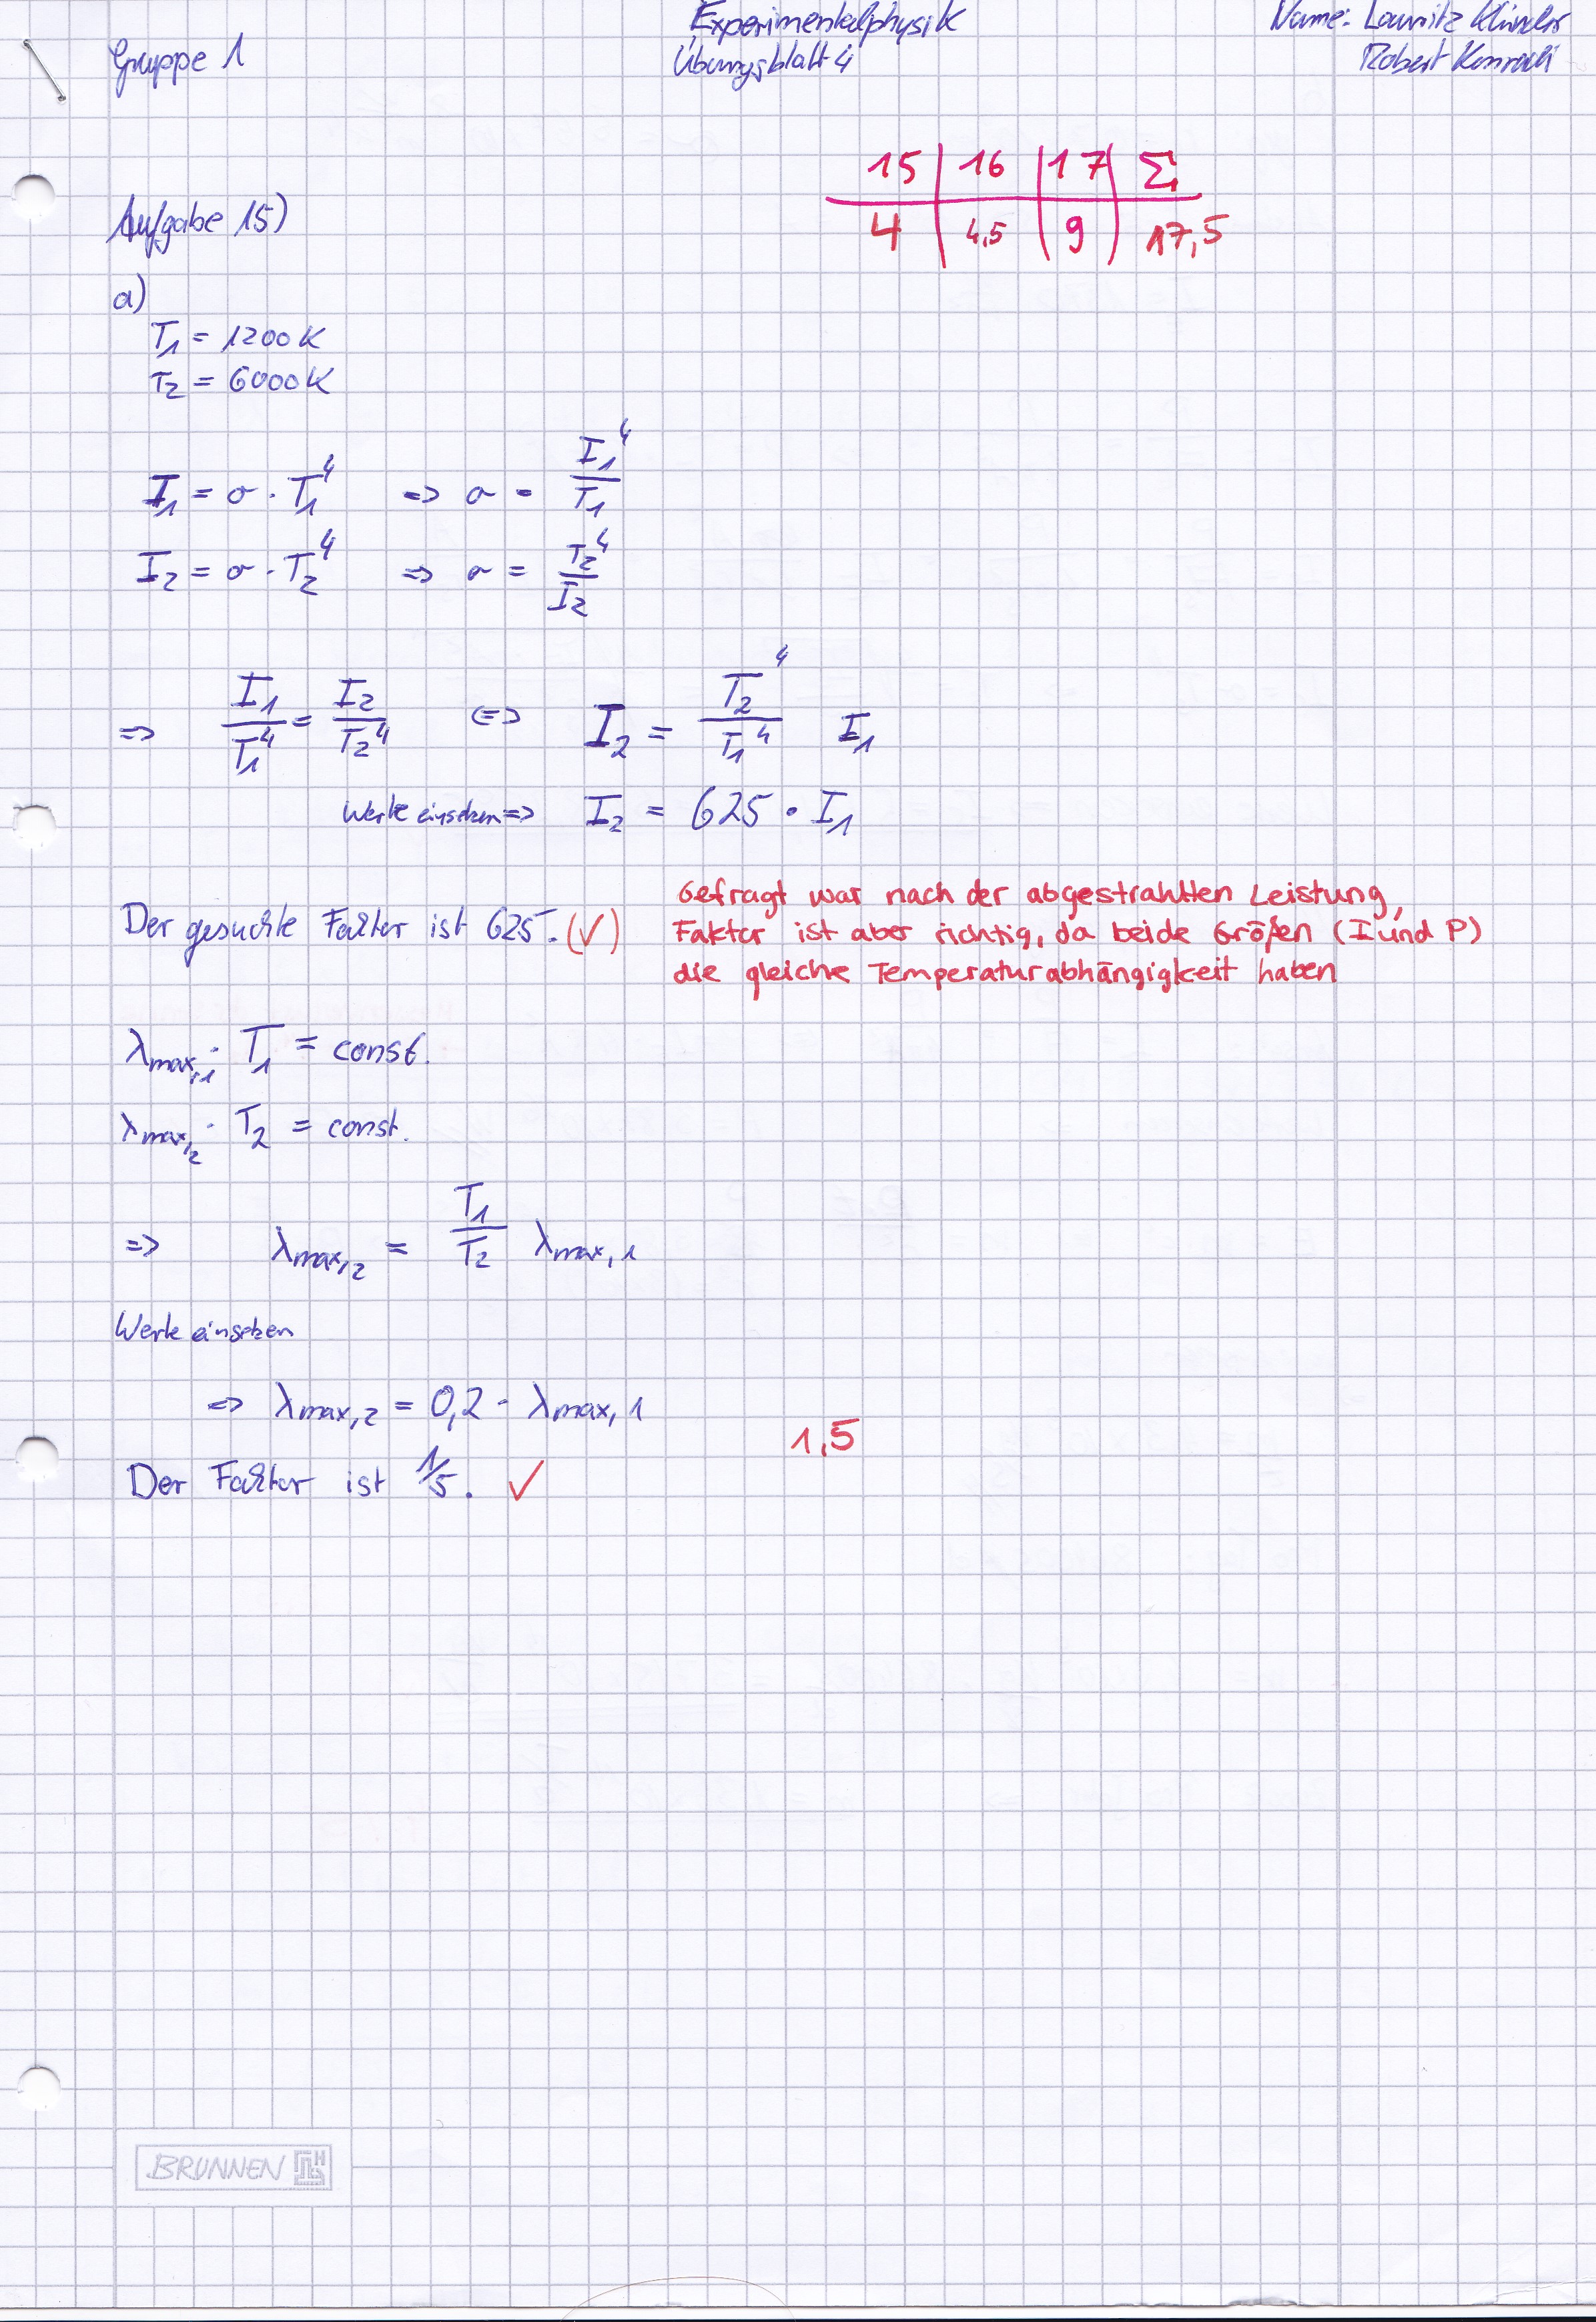 Experimentalphysik
Gruppe 1 Übungsblatt 4 Name:
Robert
15 | 16 | 17 | Σ
4 | 4,5 | 9 | 17,5
Aufgabe 15)
a)
T₁ = 1200K
T₂ = 6000K
I₁ = σ · T₁⁴ => σ = I₁⁴/T₁
I₂ = σ · T₂⁴ => σ = T₂⁴/I₂
=> I₁/T₁⁴ = I₂/T₂⁴ <=> I₂ = T₂⁴/T₁⁴ I₁
Werte einsetzen => I₂ = 625 · I₁
Der gesuchte Faktor ist 625. (✓)
Gefragt war nach der abgestrahlten Leistung,
Faktor ist aber richtig, da beide Größen (I und P)
die gleiche Temperaturabhängigkeit haben
λmax,1 · T₁ = const.
λmax,2 · T₂ = const.
=> λmax,2 = T₁/T₂ λmax,1
Werte einsetzen
=> λmax,2 = 0,2 · λmax,1
1,5
Der Faktor ist 1/5. ✓
BRUNNEN